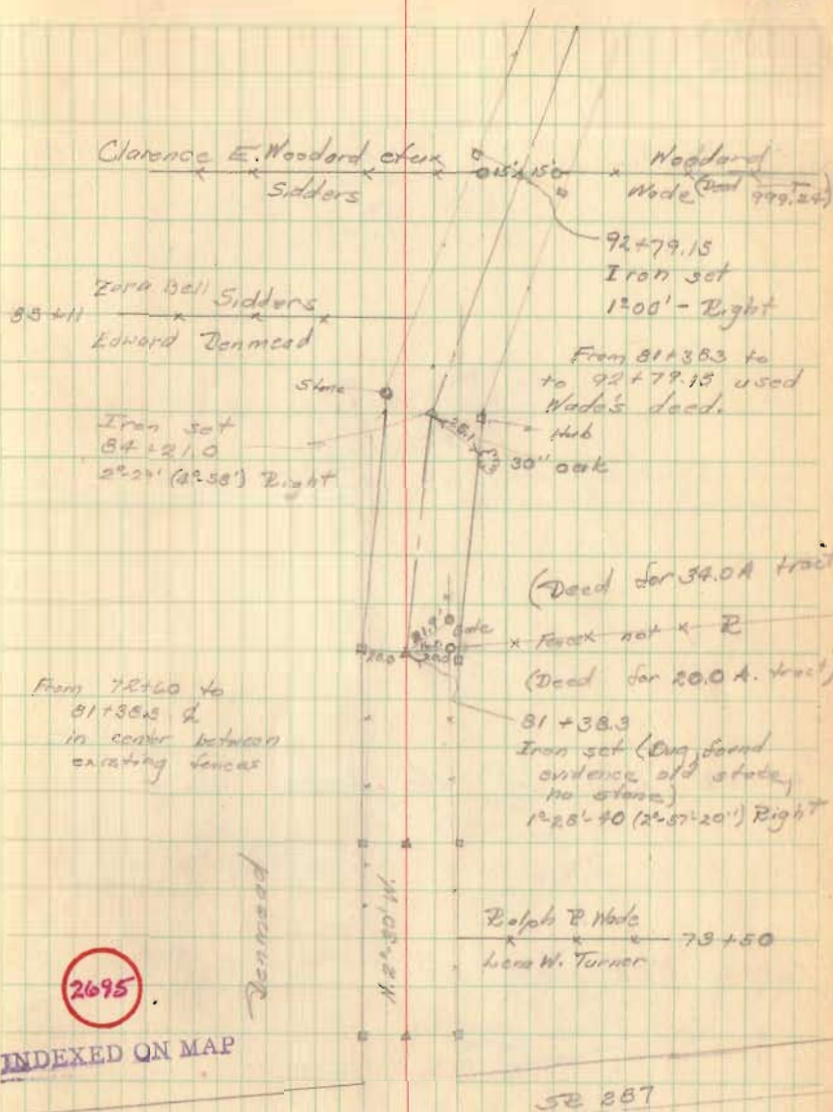 Clarence E. Woodard etux
Sidders
15' 15'
Woodard
Wade (Deed 999.24)
92+79.15
Iron set
1°00' - Right
Zora Bell Sidders
85+11
Edward Denmead
From 81+38.3 to
to 92+79.15 used
Wade's deed.
Stone
Hub
Iron set
84+21.0
2°-29' (4°-58') Right
25.1
30" oak
(Deed for 34.0A tract
21.9'
Gate
x Fence x not x P
20.0 20.0
(Deed for 20.0 A. tract)
From 72+60 to
81+38.3 ℄
in center between
existing fences
81+38.3
Iron set (Dug, found
evidence old stake,
no stone)
1°-28'-40 (2°-57'-20") Right
Denmead
N.2°-30'W.
Ralph P. Wade
73+50
Lena W. Turner
2695
INDEXED ON MAP
SR 287